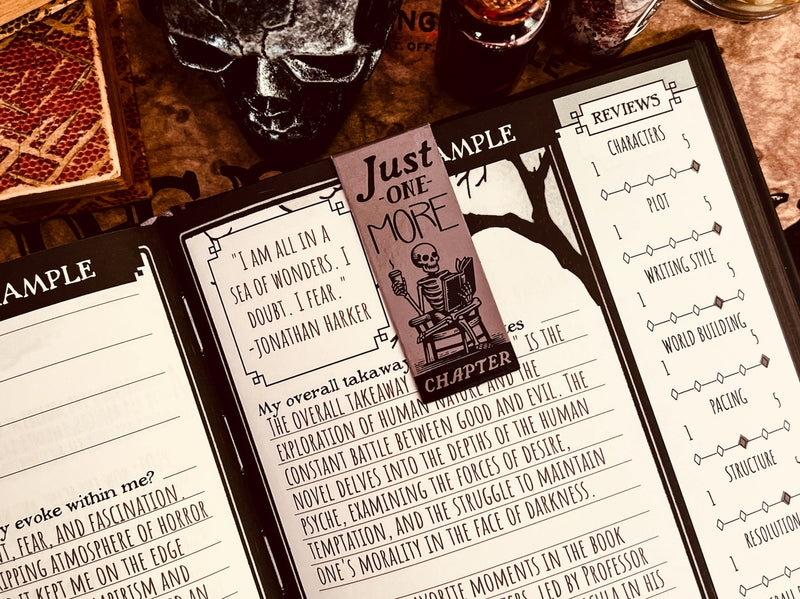 NG
T. OFF.
AMPLE
y evoke within me?
NT, FEAR, AND FASCINATION.
IPPING ATMOSPHERE OF HORROR
IT KEPT ME ON THE EDGE
MPIRISM AND
AN
AMPLE
"I AM ALL IN A
SEA OF WONDERS. I
DOUBT. I FEAR."
-JONATHAN HARKER
Just
-ONE-
MORE
CHAPTER
My overall takeaway
THE OVERALL TAKEAWAY " IS THE
EXPLORATION OF HUMAN NATURE AND THE
CONSTANT BATTLE BETWEEN GOOD AND EVIL. THE
NOVEL DELVES INTO THE DEPTHS OF THE HUMAN
PSYCHE, EXAMINING THE FORCES OF DESIRE,
TEMPTATION, AND THE STRUGGLE TO MAINTAIN
ONE'S MORALITY IN THE FACE OF DARKNESS.
FAVORITE MOMENTS IN THE BOOK
TERS, LED BY PROFESSOR
ULA IN HIS
REVIEWS
CHARACTERS
1 5
PLOT
1 5
WRITING STYLE
1 5
WORLD BUILDING
1 5
PACING
1 5
STRUCTURE
1 5
RESOLUTION